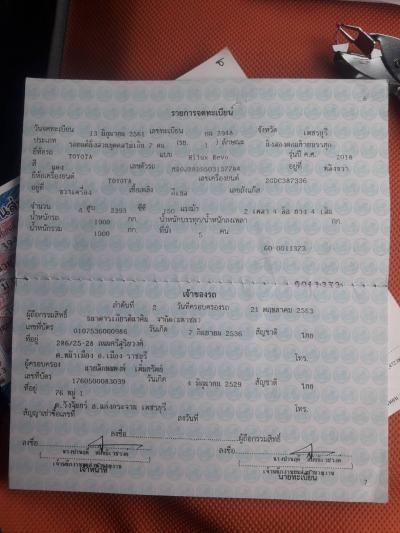 6
รายการจดทะเบียน
วันจดทะเบียน 13 มิถุนายน 2561 เลขทะเบียน กท 3948 จังหวัด เพชรบุรี
ประเภท รถยนต์นั่งส่วนบุคคลไม่เกิน 7 คน (รย. 1 ) ลักษณะ
ยี่ห้อรถ TOYOTA แบบ Hilux Revo รุ่นปี ค.ศ. 2018
สี แดง เลขตัวรถ อยู่ที่
ยี่ห้อเครื่องยนต์ TOYOTA เลขเครื่องยนต์ 2GDC387336
อยู่ที่ ขวาเครื่อง เชื้อเพลิง ดีเซล เลขถังแก๊ส
จำนวน 4 สูบ 2393 ซีซี 150 แรงม้า 2 เพลา 4 ล้อ ยาง 4 เส้น
น้ำหนักรถ 1900 กก. น้ำหนักบรรทุก/น้ำหนักลงเพลา กก.
น้ำหนักรวม 1900 กก. ที่นั่ง 5 คน
60-0011373
เจ้าของรถ
ลำดับที่ 2 วันที่ครอบครองรถ 21 พฤษภาคม 2563
ผู้ถือกรรมสิทธิ์ ธนาคารเกียรตินาคิน จำกัด(มหาชน)
เลขที่บัตร 0107536000986 วันเกิด 7 กันยายน 2536 สัญชาติ ไทย
ที่อยู่ 286/25-28 ถนนศรีสุริยวงศ์
ต.หน้าเมือง อ.เมือง ราชบุรี โทร.
ผู้ครอบครอง
เลขที่บัตร 1760500083039 วันเกิด 4 มิถุนายน 2529 สัญชาติ ไทย
ที่อยู่ 76 หมู่ 1
ต.วังจันทร์ อ.แก่งกระจาน เพชรบุรี โทร.
สัญญาเช่าซื้อเลขที่ ลงวันที่
ลงชื่อ ผู้ถือกรรมสิทธิ์
ลงชื่อ ลงชื่อ
เจ้าหน้าที่ นายทะเบียน
7